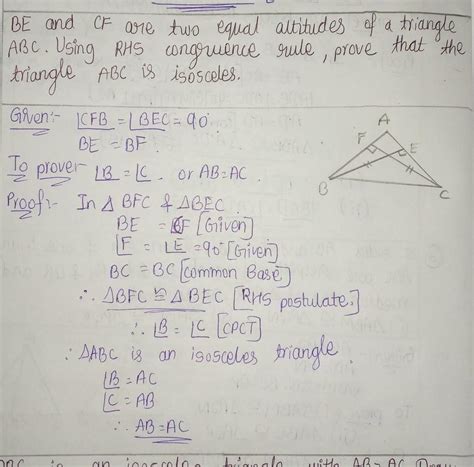 BE and CF are two equal altitudes of a triangle
ABC. Using RHS congruence rule, prove that the
triangle ABC is isosceles.
Given:- ∠CFB = ∠BEC = 90°
BE = BF.
To prove:- ∠B = ∠C. or AB = AC.
Proof:- In Δ BFC & ΔBEC.
BE = CF [Given]
∠F = ∠E = 90° [Given]
BC = BC [Common Base]
∴ ΔBFC ≅ Δ BEC [RHS postulate.]
∴ ∠B = ∠C [CPCT]
∴ ΔABC is an isosceles triangle.
∠B = AC
∠C = AB
∴ AB = AC
A
F
E
B
C
an isosceles triangle with AB = AC